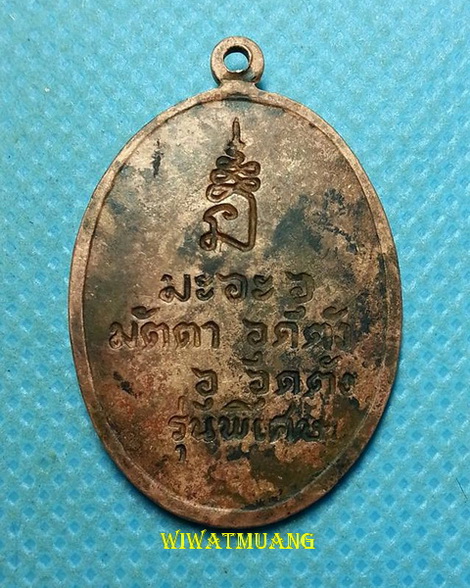 มะอะ อุ
มัตตา อุคุตัง
อุ อุดตัง
รุ่นพิเศษ
WIWATMUANG